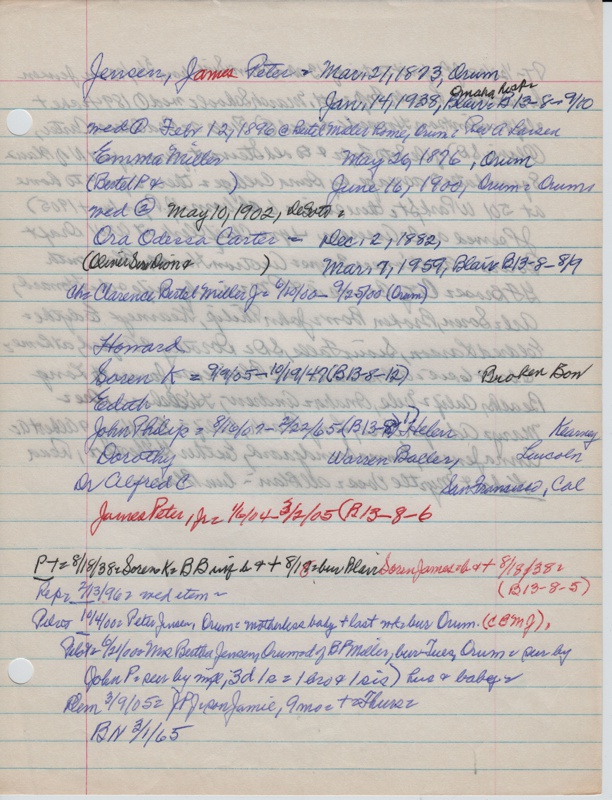 Jensen, James Peter = Mar. 21, 1873, Orum
Omaha Hosp =
Jan. 14, 1938, Blair = B13-8-9/10
med ① Feb 12, 1896 @ Bertel Miller home, Orum = Rev A Larsen
Emma Miller May 26, 1876, Orum
(Bertel P. & ) June 16, 1900, Orum = Orum
med ② May 10, 1902, DeSoto =
Ora Odessa Carter - Dec. 12, 1882,
(Oliver & ) Mar. 7, 1959, Blair B13-8-8/9
ch = Clarence Bertel Miller J = 6/10/00 - 9/25/00 (Orum)
Howard
Soren K = 9/9/05 - 10/19/47 (B13-8-12) Broken Bow
Edith
John Philip = 8/10/07 - 2/22/65 (B13-8) Helen Kearney
Dorothy Warren Bacler, Lincoln
Dr Alfred C San Francisco, Cal
James Peter, Jr = 1/6/04 - 3/2/05 (B13-8-6
P-T = 8/18/38 = Soren K = BB inf b & + 8/18 = bur Blair Soren James = b & + 8/18/38 =
(B13-8-5)
Rep = 2/13/96 = med item =
Pilot 10/4/00 = Peter Jensen, Orum = motherless baby + last wk = bur Orum. (CBMJ) =
Pilot = 6/21/00 = Mrs Bertha Jensen, Orum = d of BP Miller, bur Tues, Orum = sur by
John P = sur by 3d 1s = 1 bro & 1 sis) hus & baby =
Dem 3/9/05 = JP J = son Jamie, 9 mo = + Thurs =
BN 3/1/65